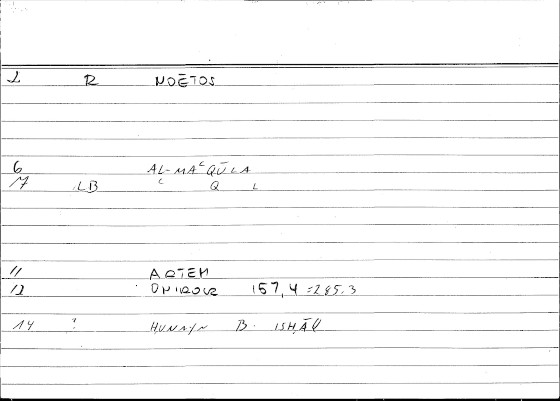 2 R NOĒTOS
6 AL-MAʿQŪLA
7 LB ʿ Q L
11 ARTEM
12 ONIROCR 157,4 =285.3
14 ? HUNAYN B. ISḤĀQ